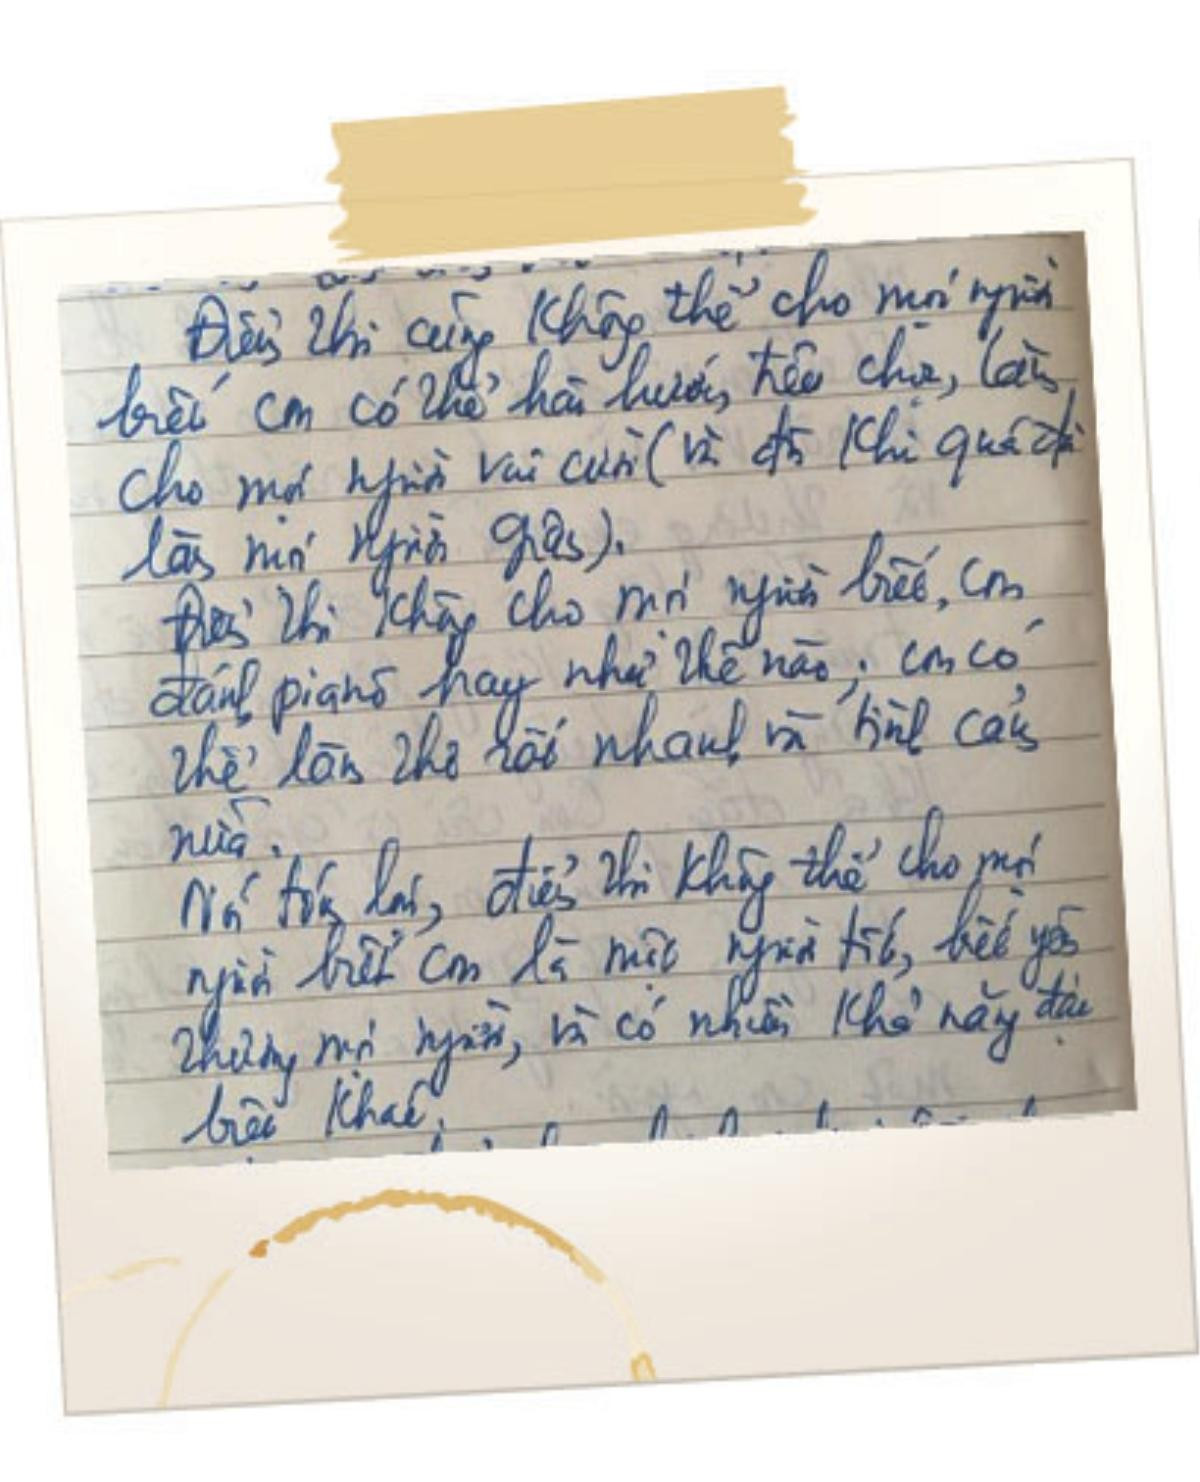 Điểm thi cũng không thể cho mọi người
biết con có thể hài hước, trêu chọc, làm
cho mọi người vui cười (và đôi khi quá đà
làm mọi người giận).
Điểm thi không cho mọi người biết, con
đánh pianô hay như thế nào, con có
thể làm thơ rất nhanh và tình cảm
nữa.
Nói tóm lại, điểm thi không thể cho mọi
người biết con là một người tốt, biết yêu
thương mọi người, và có nhiều khả năng đặc
biệt khác.